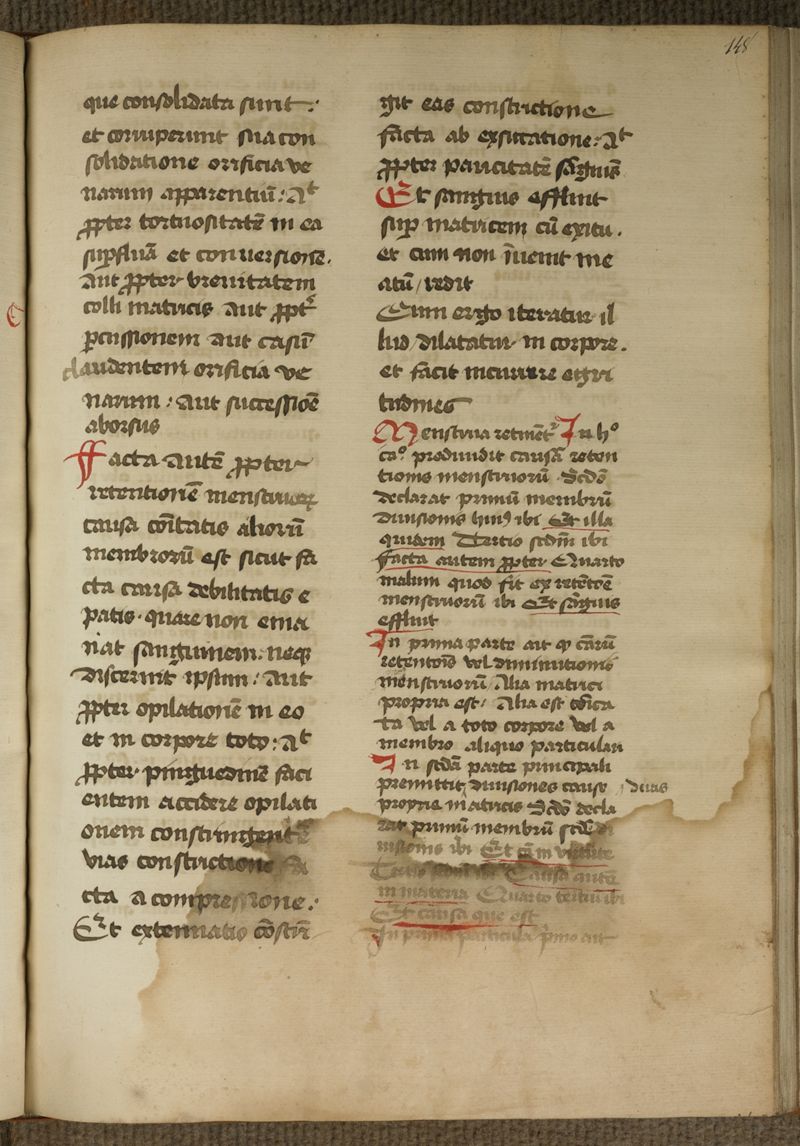 148
que consolidata sunt :·
et corruperunt sua con
solidatione orificia ve
narum apparentiū : At
ꝓpter tortuositatē in ea
suꝑfluā et conuersionē .
Aut ꝓpter breuitatem
colli matricis Aut ꝓpt᷑
ꝑcussionem aut casū
claudentem orificia ve
narum : Aut successiōe
aborsus
ffacta autē ꝓpter
retentionē menstruorꝫ
causa cōitatis aliorū
membrorū est sicut fa
cta causa debilitatis e
patis · quare non ema
nat sanguinem . neqꝫ
discernit ipsum : Aut
ꝓpter opilationē in eo
et in corpore toto : At
ꝓpter pinguedinē faci
entem accidere opilati
onem constringentē
vias constrictione
cta a compressione :·
Et extenuatio cōstrī
git eas constrictione
facta ab exsiccatione : At
ꝓpter paucitatē sāguis
Et sanguis affluit
suꝑ matricem cū exitu .
et cum non īuenit me
atū / redit
Cum ergo iteratur il
lud dilatatur in corpore .
et facit incurrere egri
tudines
Menstrua retinēt᷑ In hͦ
caͦ produndit causā reten
tionis menstruorū Scdͦ
declarat primū membrū
diuisionis huiꝰ ibi Et illa
quidem Tertio scdm̄ ibi
ffacta autem ꝓpter Quarto
malum quod fit ex retētōe
menstruorū ibi Et sāguis
effluit
In prima parte ait ꝙ cārū
retentōis vel diminutionis
menstruorū Alia matrici
propria est / Alia est cōica
ta vel a toto corpore vel a
membro aliquo particulari
In scdā parte principali
premittit diuisiones cause duas
proprie matricis Scdͦ decla
rat primū membrū
uisionis ibi Et
Causa autē
in materia Quarto tertiū ibi
Et causa que est
In prima particula pͥmo ait